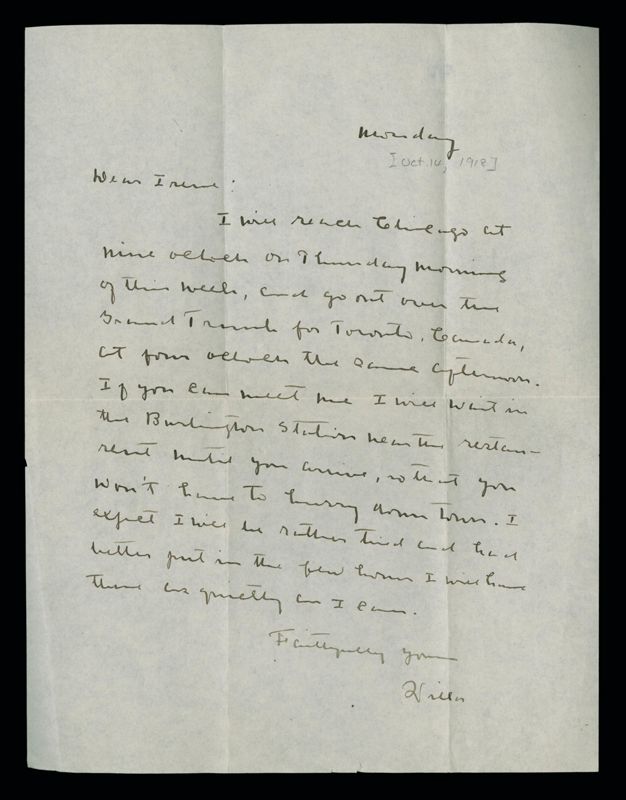 Monday
[Oct. 14, 1918]
Dear Irene:
I will reach Chicago at
nine oclock on Thursday morning
of this week, and go out over the
Grand Trunk for Toronto, Canada,
at four oclock the same afternoon.
If you can meet me I will wait in
the Burlington Station near the restau-
rant until you arrive, so that you
won't have to hurry down town. I
expect I will be rather tired and had
better put in the few hours I will have
there as quietly as I can.
Faithfully yours
Willa